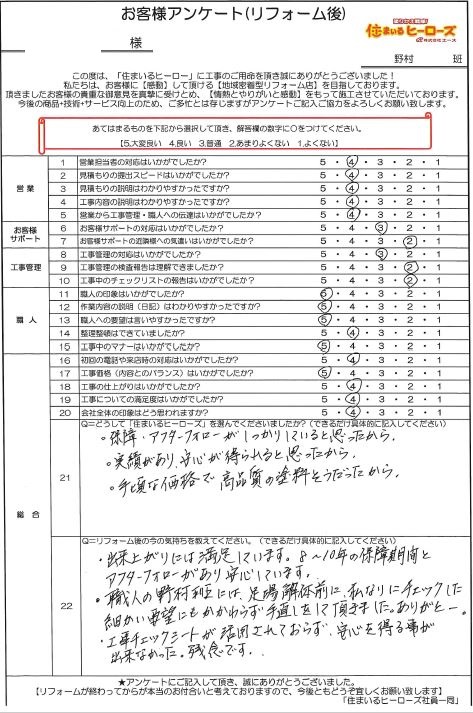 お客様アンケート(リフォーム後)
まごころ宣言!
住まいるヒーローズ
株式会社エース
様
野村 班
この度は、「住まいるヒーロー」に工事のご用命を頂き誠にありがとうございました!
私たちは、お客様に【感動】して頂ける【地域密着型リフォーム店】を目指しております。
頂きましたお客様の貴重な御意見を真摯に受けとめ、【情熱とやりがいと感動】をもって施工させていただいております。
今後の商品・技術・サービス向上のため、ご多忙とは存じますがアンケートご記入ご協力をよろしくお願い致します。
あてはまるものを下記から選択して頂き、解答欄の数字に○をつけてください。
【5.大変良い 4.良い 3.普通 2.あまりよくない 1.よくない】
営業
1 営業担当者の対応はいかがでしたか? 5・4・3・2・1
2 見積もりの提出スピードはいかがでしたか? 5・4・3・2・1
3 見積もりの説明はわかりやすかったですか? 5・4・3・2・1
4 工事内容の説明はいかがでしたか? 5・4・3・2・1
5 営業から工事管理・職人への伝達はいかがでしたか? 5・4・3・2・1
お客様サポート
6 お客様サポートの対応はいかがでしたか? 5・4・3・2・1
7 お客様サポートの近隣様への気遣いはいかがでしたか? 5・4・3・2・1
工事管理
8 工事管理の対応はいかがでしたか? 5・4・3・2・1
9 工事管理の検査報告は理解できましたか? 5・4・3・2・1
10 工事中のチェックリストの報告はいかがでしたか? 5・4・3・2・1
職人
11 職人の印象はいかがでしたか? 5・4・3・2・1
12 作業内容の説明(日記)はわかりやすかったですか? 5・4・3・2・1
13 職人への要望は言いやすかったですか? 5・4・3・2・1
14 整理整頓はできていましたか? 5・4・3・2・1
15 工事中のマナーはいかがでしたか? 5・4・3・2・1
総合
16 初回の電話や来店時の対応はいかがでしたか? 5・4・3・2・1
17 工事価格(内容とのバランス)はいかがでしたか? 5・4・3・2・1
18 工事の仕上がりはいかがでしたか? 5・4・3・2・1
19 工事についての満足度はいかがでしたか? 5・4・3・2・1
20 会社全体の印象はどう思われますか? 5・4・3・2・1
21
Q=どうして「住まいるヒーローズ」を選んでくださいましたか?(できるだけ具体的に記入してください)
・保障・アフターフォローがしっかりしていると思ったから。
・実績があり、安心が得られると思ったから。
・手頃な価格で高品質の塗料そうだったから。
22
Q=リフォーム後の今の気持ちを教えてください。(できるだけ具体的に記入してください)
・出来上がりには満足しています。8〜10年の保障期間と
アフターフォローがあり安心しています。
・職人の野村利臣には、足場解体前に、私なりにチェックした
細かい要望にもかかわらず手直しをして頂きました。ありがとー。
・工事チェックシートが活用されておらず、安心を得る事が
出来なかった。残念です...
★アンケートにご記入して頂き、誠にありがとうございました。
【リフォームが終わってからが本当のお付合いと考えておりますので、今後ともどうぞ宜しくお願い致します】
「住まいるヒーローズ社員一同」